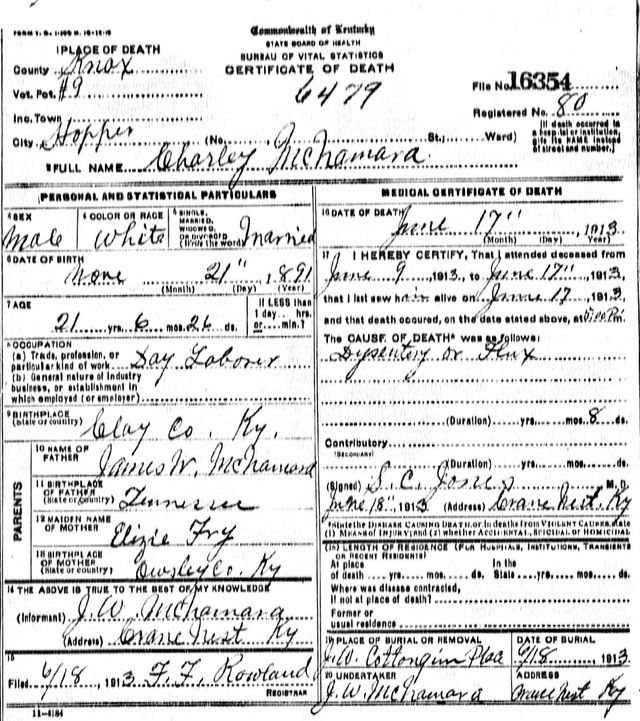 FORM V. S. 1-
Commonwealth of Kentucky
STATE BOARD OF HEALTH
BUREAU OF VITAL STATISTICS
CERTIFICATE OF DEATH
1 PLACE OF DEATH
County Knox
Vot. Pct. #9
Inc. Town
City Hopper (No. St.; Ward)
6479
File No. 16354
Registered No. 80
(If death occurred in a hospital or institution, give its NAME instead of street and number.)
2 FULL NAME Charley McNamara
PERSONAL AND STATISTICAL PARTICULARS
3 SEX Male
4 COLOR OR RACE White
5 SINGLE, MARRIED, WIDOWED, OR DIVORCED (Write the word) Married
6 DATE OF BIRTH
Nove 21", 1891
(Month) (Day) (Year)
7 AGE
21 yrs. 6 mos. 26 ds.
If LESS than 1 day hrs. or min.?
8 OCCUPATION
(a) Trade, profession, or particular kind of work Day Laborer
(b) General nature of industry
business, or establishment in
which employed (or employer)
9 BIRTHPLACE
(State or country) Clay Co. Ky.
PARENTS
10 NAME OF FATHER James W. McNamara
11 BIRTHPLACE OF FATHER (State or country) Tennessee
12 MAIDEN NAME OF MOTHER Elizie Fry
13 BIRTHPLACE OF MOTHER (State or country) Owsley Co. Ky
14 THE ABOVE IS TRUE TO THE BEST OF MY KNOWLEDGE
(Informant) J. W. McNamara
(Address) Crane Nest Ky
15
Filed 6/18, 1913 F. F. Rowland
REGISTRAR
11-4184
MEDICAL CERTIFICATE OF DEATH
16 DATE OF DEATH
June 17", 1913
(Month) (Day) (Year)
17 I HEREBY CERTIFY, That I attended deceased from
June 9, 1913, to June 17", 1913,
that I last saw him alive on June 17, 1913,
and that death occured, on the date stated above, at
The CAUSE OF DEATH* was as follows:
Dysentery or Flux
(Duration) yrs. mos. 8 ds.
Contributory
(SECONDARY)
(Duration) yrs. mos. ds.
(Signed) S. C. Jones M. D.
June 18", 1913 (Address) Crane Nest, Ky
*State the DISEASE CAUSING DEATH, or in deaths from VIOLENT CAUSES, state
(1) MEANS OF INJURY; and (2) whether ACCIDENTAL, SUICIDAL or HOMICIDAL
18 LENGTH OF RESIDENCE (FOR HOSPITALS, INSTITUTIONS, TRANSIENTS OR RECENT RESIDENTS)
At place of death yrs. mos. ds. In the State yrs. mos. ds.
Where was disease contracted,
if not at place of death?
Former or
usual residence
19 PLACE OF BURIAL OR REMOVAL J. W. Cottongim Plac
DATE OF BURIAL 6/18, 1913
20 UNDERTAKER J. W. McNamara
ADDRESS Crane Nest Ky